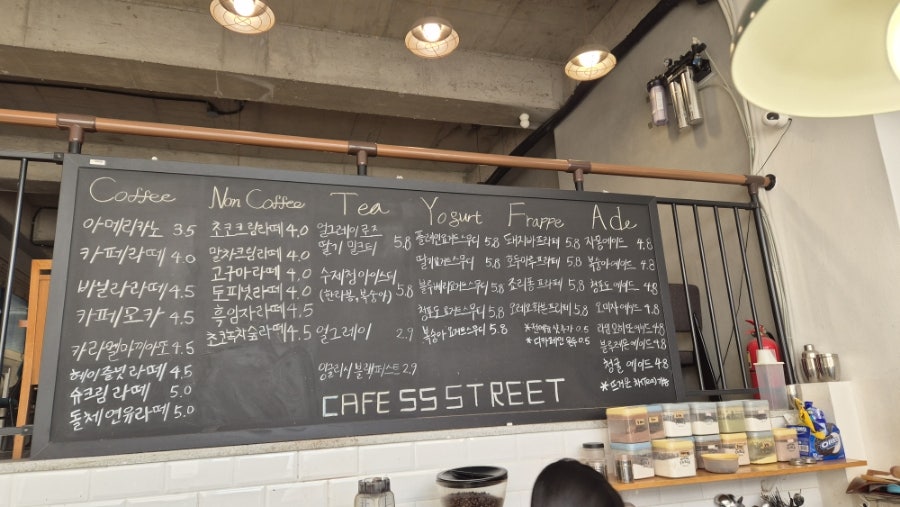 Coffee
아메리카노 3.5
카페라떼 4.0
바닐라라떼 4.5
카페모카 4.5
카라멜마끼아또 4.5
헤이즐넛라떼 4.5
슈크림라떼 5.0
돌체연유라떼 5.0
Non Coffee
초코크림라떼 4.0
말차크림라떼 4.0
고구마라떼 4.0
토피넛라떼 4.0
흑임자라떼 4.5
초코녹차슈라떼 4.5
Tea
얼그레이로즈
딸기 밀크티 5.8
수제청아이스티
(한라봉, 복숭아) 5.8
얼그레이 2.9
잉글리시블랙퍼스트 2.9
Yogurt
플레인요거트스무디 5.8
딸기요거트스무디 5.8
블루베리요거트스무디 5.8
청포도요거트스무디 5.8
복숭아요거트스무디 5.8
Frappe
프라페 5.8
쿠앤 프라페 5.8
초리퐁프라페 5.8
오레오 프라페 5.8
추가 0.5
* 디카페인 0.5
Ade
자몽에이드 4.8
복숭아에이드 4.8
청포도에이드 4.8
오미자에이드 4.8
에이드 4.8
블루레몬에이드 4.8
청귤에이드 4.8
* 뜨거운 차 가능
CAFE SS STREET
OREO